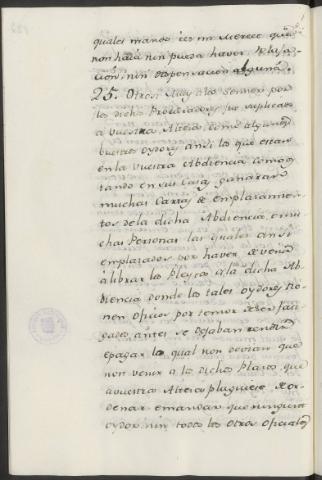 quales mando é es mi Merced que
non haia nin pueda haver
ción, nin dispensacion alguna.
25. Otrosi Muy alto Señor por
los dichos Procuradores fue suplicado
á vuestra Alteza, como algunos
vuestros oydores ansi los que estan
en la vuestra Abdiencia como es
tando en sus casas, ganaran
muchas Cartas de emplazamien
tos de la dicha Abdiencia, é mu
chas Personas las quales ansi
emplazados por haver de venir
á librar los Pleytos á la dicha Ab
diencia donde los tales oydores tie
nen oficios por temor de ser fati
gados, antes se dejaban rendir
é pagar lo qual non devian que
non venir a los dichos Plazos, que
á vuestra Alteza pluguiese de or
denar é mandar que ningun
oydor, nin todos los otros oficiales